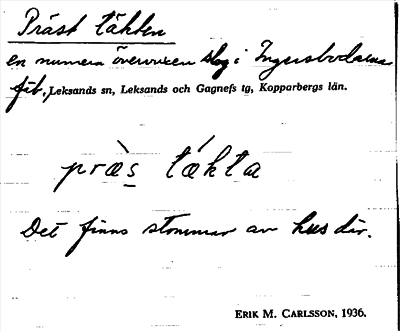 Präst täkten
en numera övervuxen slog i Ingersbodarnas
fäb., Leksands sn, Leksands och Gagnefs tg, Kopparbergs län.
præ̀s tǽkta
Det finns stommar av hus där.
ERIK M. CARLSSON, 1936.